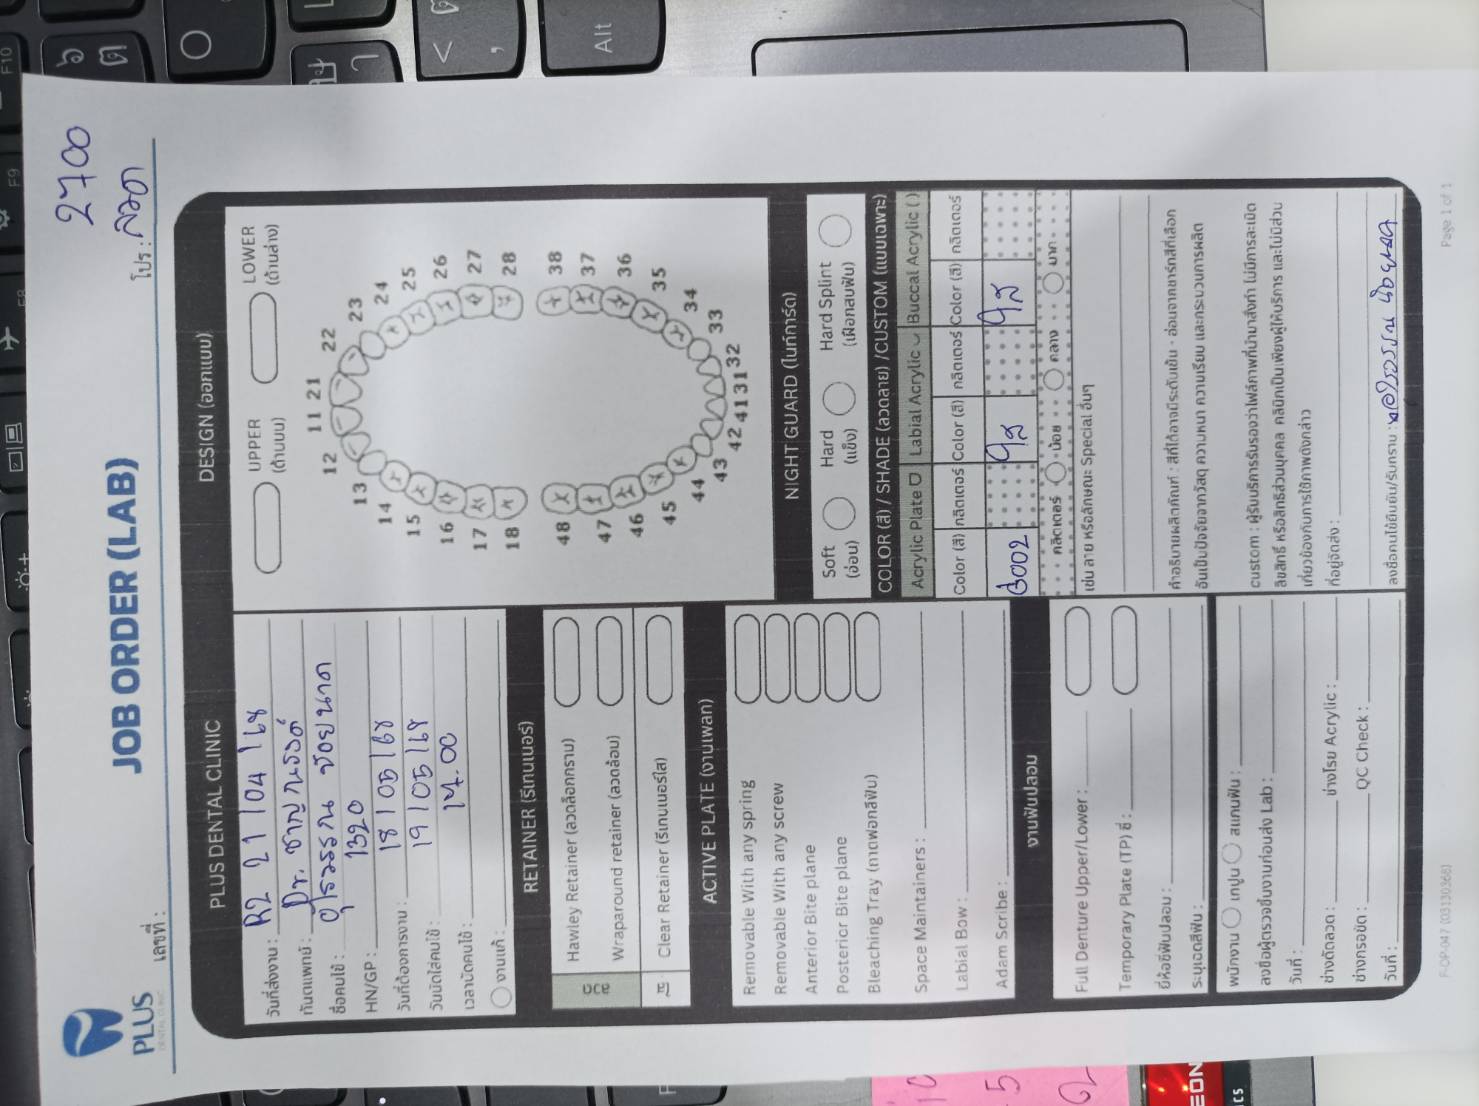 2700
PLUS
DENTAL CLINIC
JOB ORDER (LAB)
เลขที่ :
โปร : ลวด
PLUS DENTAL CLINIC
วันที่สั่งงาน : R2 21/04/68
ทันตแพทย์ : Dr.
ชื่อคนไข้ :
HN/GP : 1320
วันที่ต้องการงาน : 18/05/68
วันนัดใส่คนไข้ : 19/05/68
เวลานัดคนไข้ : 14.00
งานแก้ :
RETAINER (รีเทนเนอร์)
ลวด
Hawley Retainer (ลวดล็อกกราม)
Wraparound retainer (ลวดล้อม)
ใส
Clear Retainer (รีเทนเนอร์ใส)
ACTIVE PLATE (งานเพลท)
Removable With any spring
Removable With any screw
Anterior Bite plane
Posterior Bite plane
Bleaching Tray (ถาดฟอกสีฟัน)
Space Maintainers :
Labial Bow :
Adam Scribe :
งานฟันปลอม
Full Denture Upper/Lower :
Temporary Plate (TP) ซี่ :
ยี่ห้อซี่ฟันปลอม :
ระบุเฉดสีฟัน :
พนักงาน เทปูน สแกนฟัน :
ลงชื่อผู้ตรวจชิ้นงานก่อนส่ง Lab :
วันที่ :
ช่างดัดลวด :
ช่างโรย Acrylic :
ช่างกรอขัด :
QC Check :
วันที่ :
DESIGN (ออกแบบ)
UPPER
(ด้านบน)
LOWER
(ด้านล่าง)
11 21
12 22
13 23
14 24
15 25
16 26
17 27
18 28
48 38
47 37
46 36
45 35
44 34
43 33
42 41 31 32
NIGHT GUARD (ไนท์การ์ด)
Soft
(อ่อน)
Hard
(แข็ง)
Hard Splint
(เฝือกสบฟัน)
COLOR (สี) / SHADE (ลวดลาย) /CUSTOM (แบบเฉพาะ)
Acrylic Plate Labial Acrylic Buccal Acrylic ( )
Color (สี) กลิตเตอร์ Color (สี) กลิตเตอร์ Color (สี) กลิตเตอร์
B002 ใส ใส
กลิตเตอร์ น้อย กลาง มาก
เช่น ลาย หรือลักษณะ Special อื่นๆ
คำอธิบายผลิตภัณฑ์ : สีที่ได้อาจมีระดับเข้ม - อ่อนจากชาร์ทสีที่เลือก
อันเป็นปัจจัยจากวัสดุ ความหนา ความเรียบ และกระบวนการผลิต
custom : ผู้รับบริการรับรองว่าไฟล์ภาพที่นำมาสั่งทำ ไม่มีการละเมิด
ลิขสิทธิ์ หรือสิทธิส่วนบุคคล คลินิกเป็นเพียงผู้ให้บริการ และไม่มีส่วน
เกี่ยวข้องกับการใช้ภาพดังกล่าว
ที่อยู่จัดส่ง :
ลงชื่อคนไข้ยืนยัน/รับทราบ :
F-OP-047 (031303668)
Page 1 of 1
Alt
F10
F9
F8